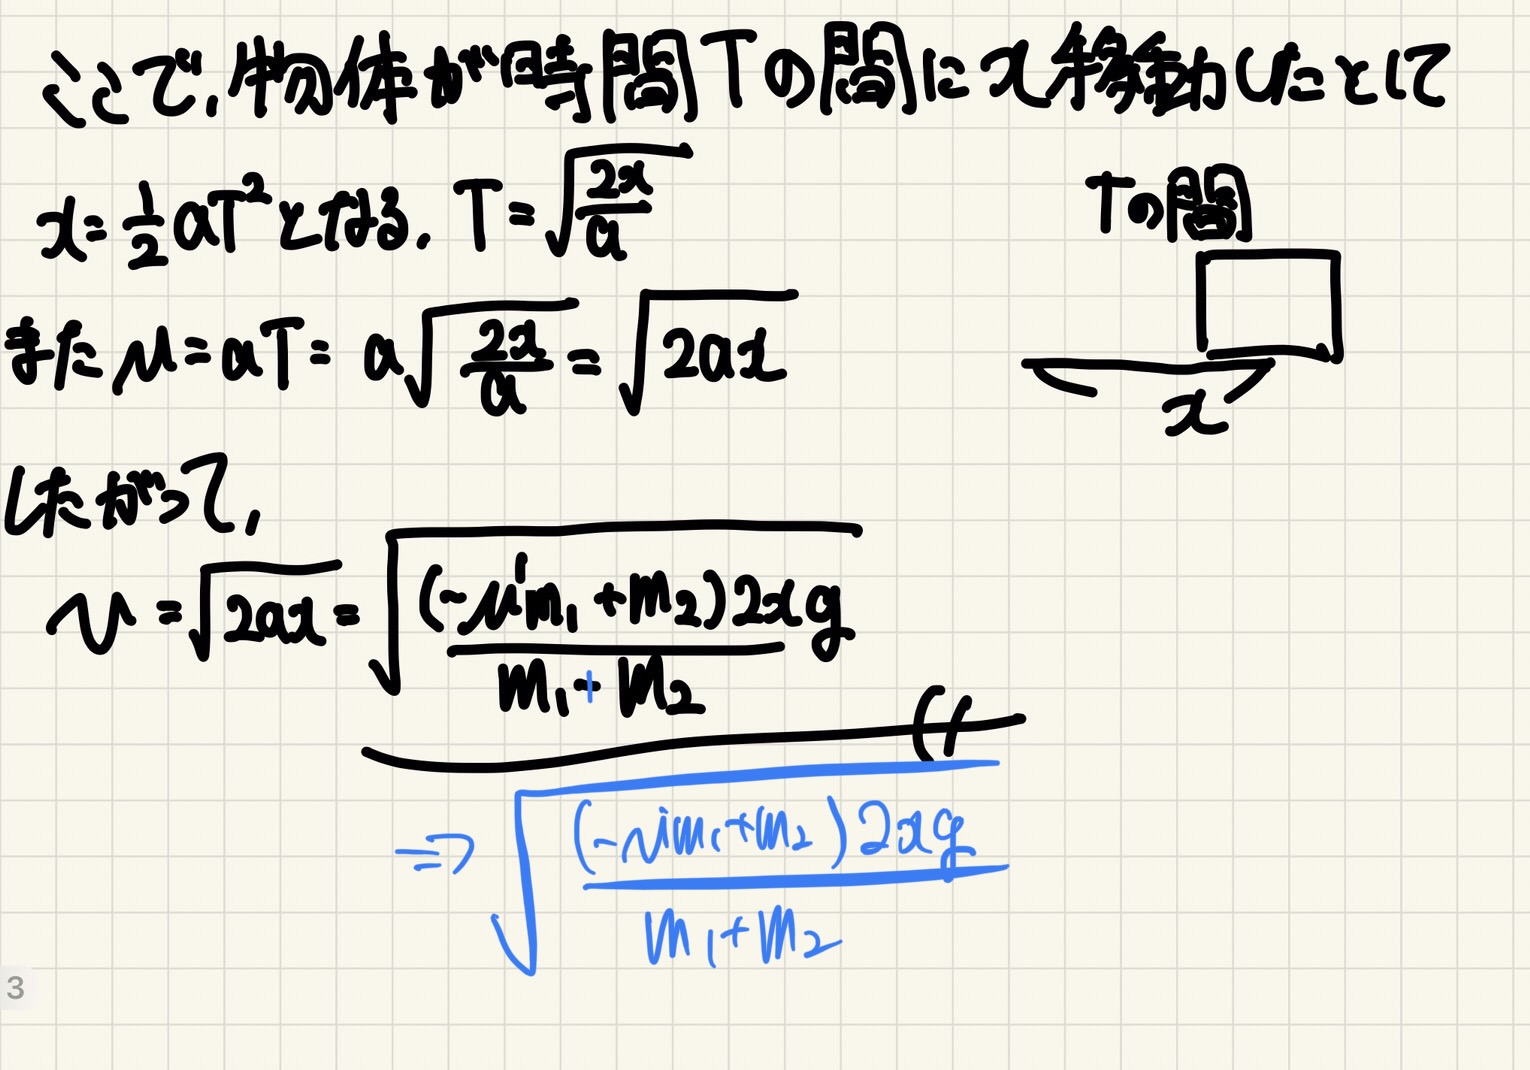 ここで,物体が時間Tの間にx移動したとして
x=½aT²となる. T=√(2x/a)
Tの間
x
またv=aT=a√(2x/a)=√(2ax)
したがって,
v=√(2ax)=√((-μ'm₁+m₂)2xg/(m₁+m₂))
⇒√((-μ'm₁+m₂)2xg/(m₁+m₂))
3